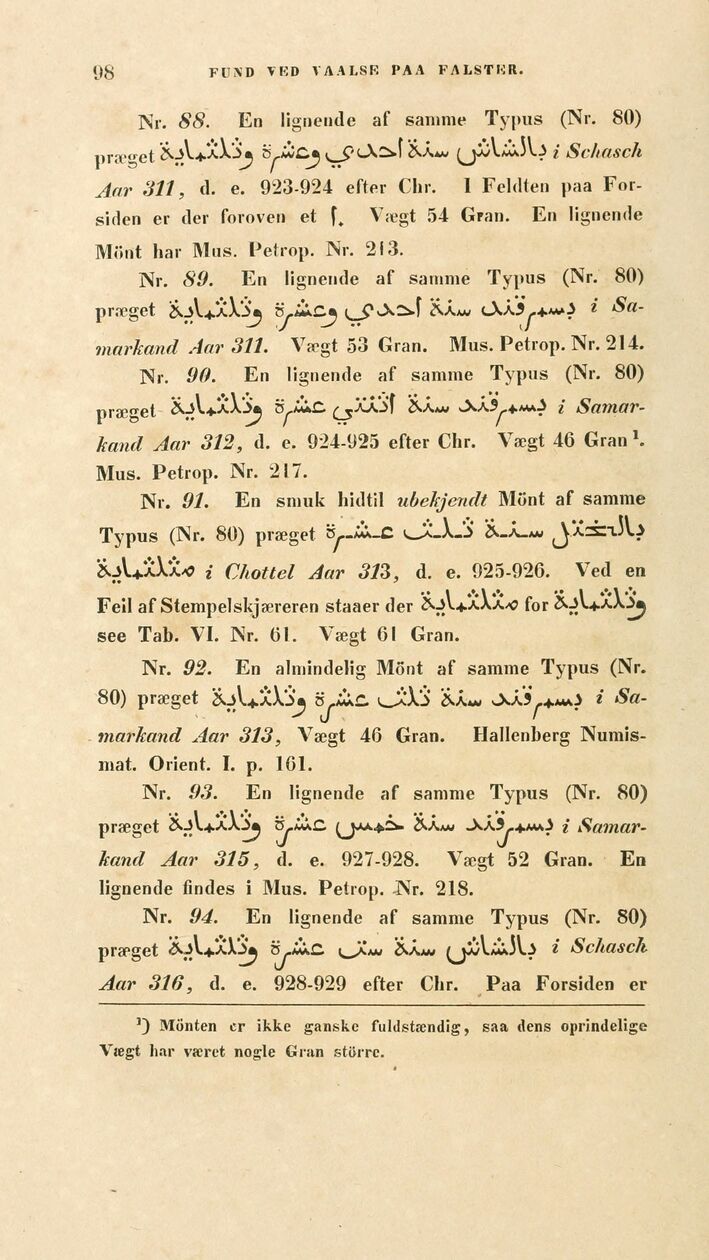 98 FUND VED VAALSE PAA FALSTER.
Nr. 88. En lignende af samme Typus (Nr. 80)
præget بالشاش سنة احدى وعشرة وثلثماية i Schasch
Aar 311, d. e. 923-924 efter Chr. I Feldten paa For-
siden er der foroven et Vægt 54 Gran. En lignende
Mönt har Mus. Petrop. Nr. 213.
Nr. 89. En lignende af samme Typus (Nr. 80)
præget بسمرقند سنة احدى وعشرة وثلثماية i Sa-
markand Aar 311. Vægt 53 Gran. Mus. Petrop. Nr. 214.
Nr. 90. En lignende af samme Typus (Nr. 80)
præget بسمرقند سنة اثنى عشرة وثلثماية i Samar-
kand Aar 312, d. e. 924-925 efter Chr. Vægt 46 Gran¹.
Mus. Petrop. Nr. 217.
Nr. 91. En smuk hidtil ubekjendt Mönt af samme
Typus (Nr. 80) præget سنة ثلث عشرة
i Chottel Aar 313, d. e. 925-926. Ved en
Feil af Stempelskjæreren staaer der for وثلثماية
see Tab. VI. Nr. 61. Vægt 61 Gran.
Nr. 92. En almindelig Mönt af samme Typus (Nr.
80) præget بسمرقند سنة ثلث عشرة وثلثماية i Sa-
markand Aar 313, Vægt 46 Gran. Hallenberg Numis-
mat. Orient. I. p. 161.
Nr. 93. En lignende af samme Typus (Nr. 80)
præget بسمرقند سنة خمس عشرة وثلثماية i Samar-
kand Aar 315, d. e. 927-928. Vægt 52 Gran. En
lignende findes i Mus. Petrop. Nr. 218.
Nr. 94. En lignende af samme Typus (Nr. 80)
præget بالشاش سنة ست عشرة وثلثماية i Schasch
Aar 316, d. e. 928-929 efter Chr. Paa Forsiden er
¹) Mönten er ikke ganske fuldstændig, saa dens oprindelige
Vægt har været nogle Gran större.